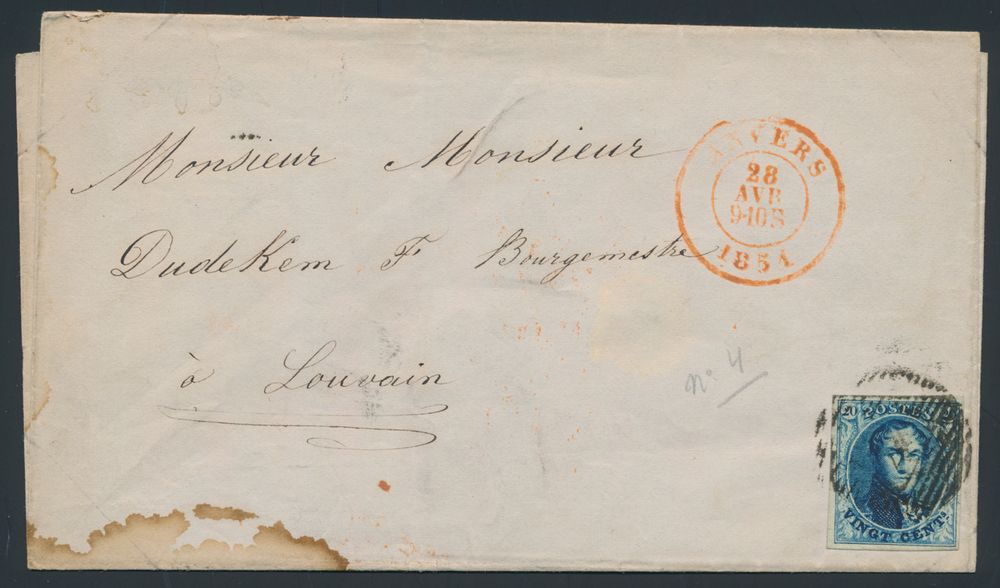 Monsieur Monsieur
Dudekem F Bourgemestre
à Louvain
ANVERS
28
AVR
9-10S
1851
n° 4
20 POSTES 20
VINGT CENTS